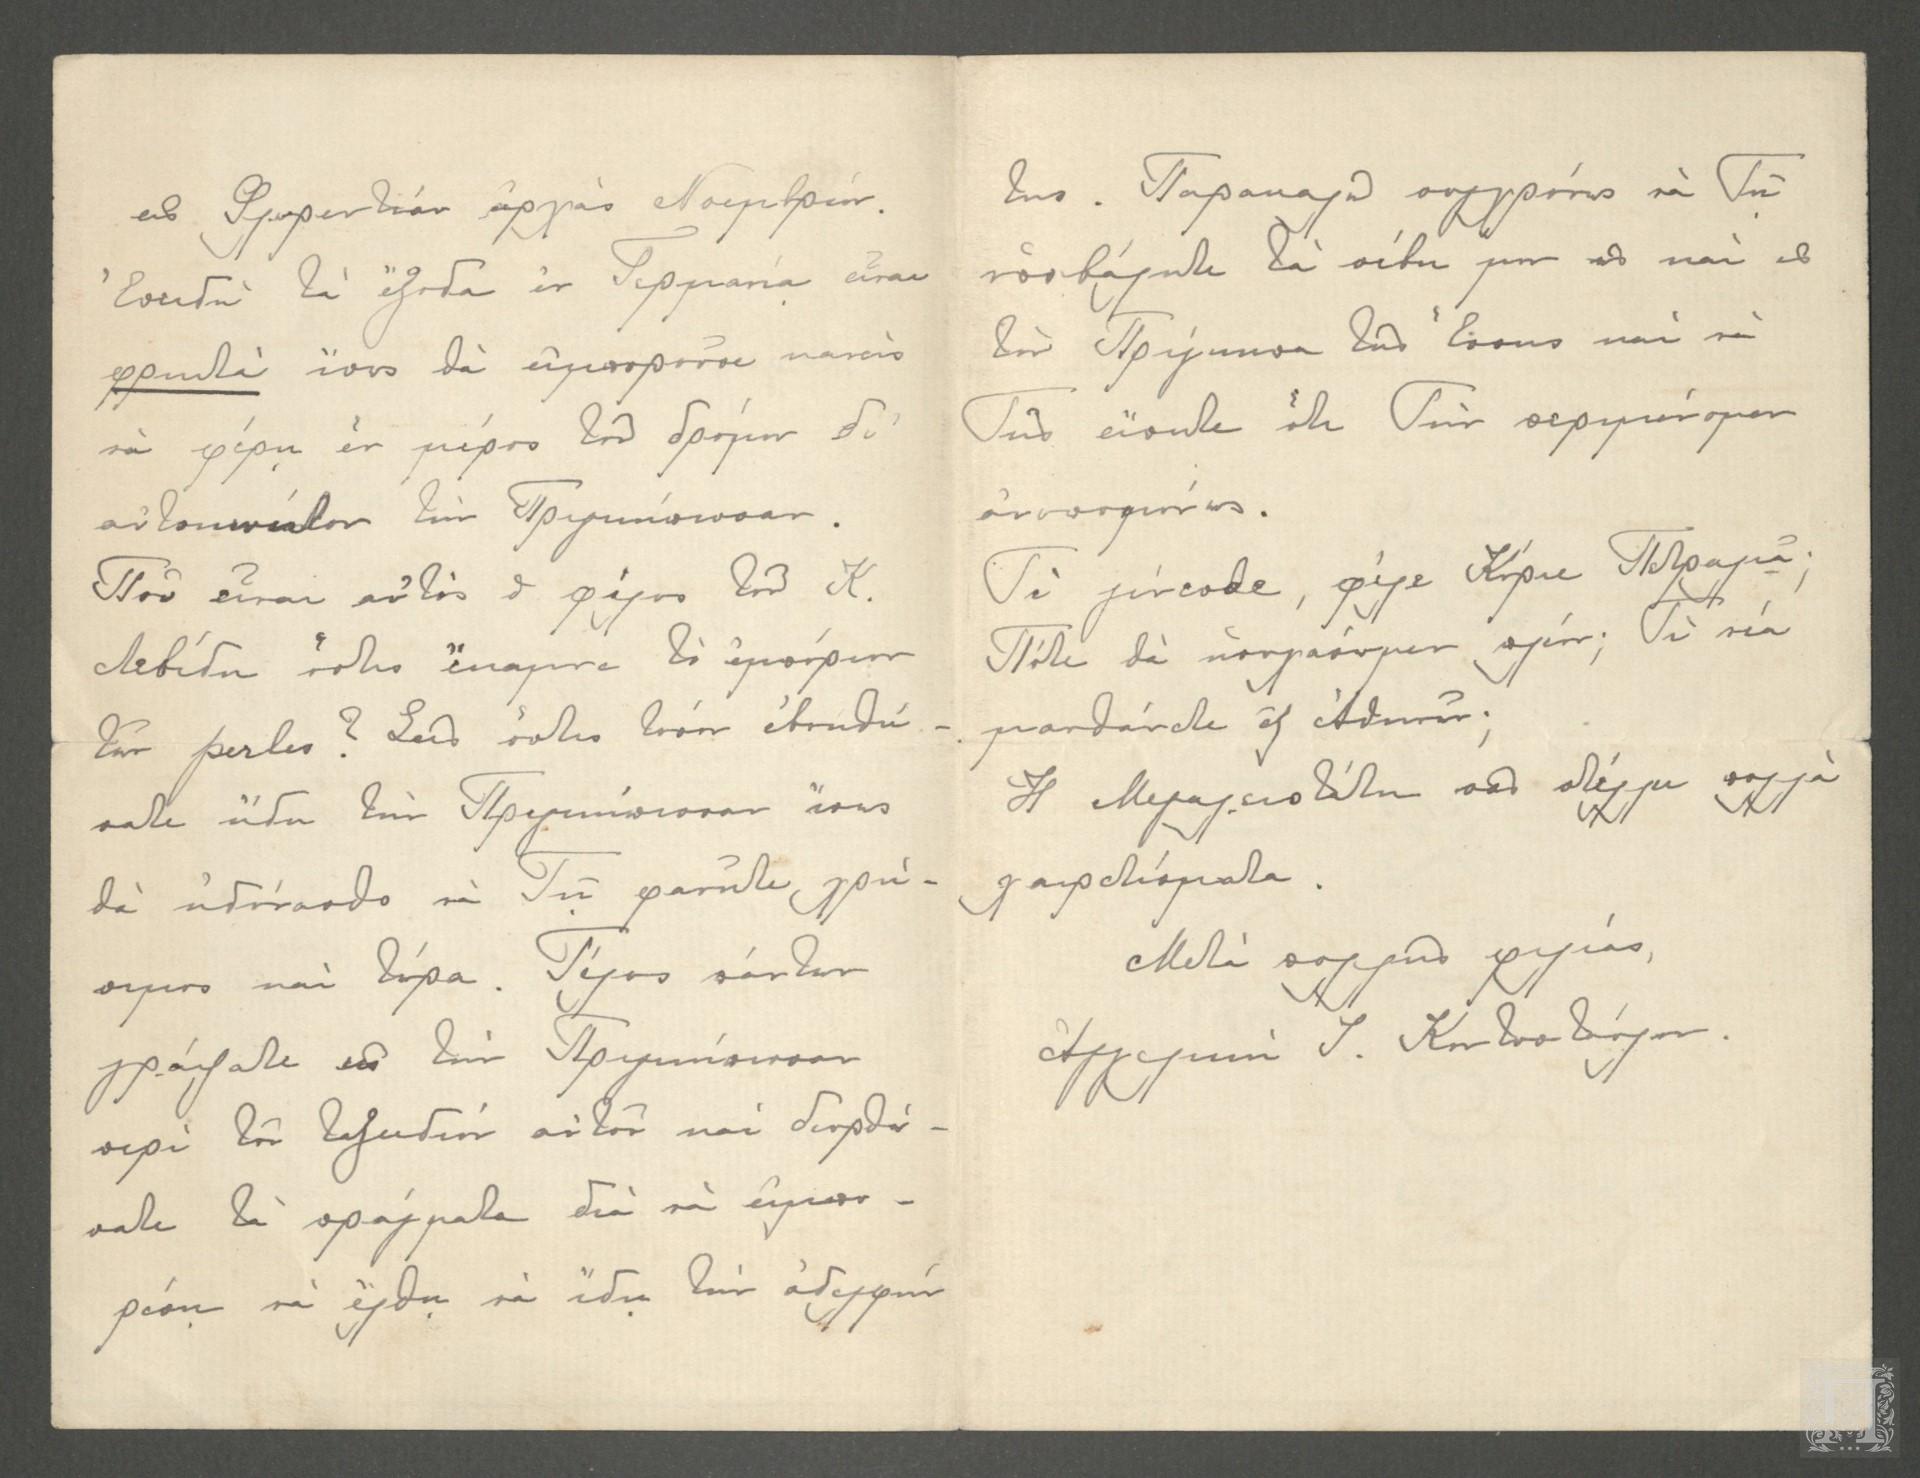 εἰς Φλωρεντίαν ἀρχὰς Νοεμβρίου.
Ἐπειδὴ τὰ ἔξοδα ἐν Γερμανίᾳ εἶναι
φρικτὰ ἴσως θὰ εἰμποροῦσε κανεὶς
νὰ φέρῃ ἓν μέρος τοῦ δρόμου δι'
αὐτοκινήτου τὴν Πριγκίπισσαν.
Ποῦ εἶναι αὐτὸς ὁ φίλος τοῦ Κ.
Λεβίδη ὅστις ἔκαμνε τὸ ἐμπόριον
τῶν perles? Σεῖς ὅστις τόσον ἐβοηθή-
σατε ἤδη τὴν Πριγκίπισσαν ἴσως
θὰ ἠδύνασθο νὰ Τῇ φανῆτε χρή-
σιμος καὶ τώρα. Τέλος πάντων
γράψατε εἰς τὴν Πριγκίπισσαν
περὶ τοῦ ταξειδίου αὐτοῦ καὶ διορθώ-
σατε τὰ πράγματα διὰ νὰ εἰμπο-
ρέσῃ νὰ ἔλθῃ νὰ ἴδῃ τὴν ἀδελφήν
της. Παρακαλῶ συγχρόνως νὰ Τῇ
ὑποβάλητε τὰ σέβη μου ὡς καὶ εἰς
τὸν Πρίγκιπα τῆς Ἔσσης καὶ νὰ
Τῆς εἴπητε ὅτι Τὴν περιμένομεν
ἀνυπομόνως.
Τί γίνεσθε, φίλε Κύριε Πετραλιᾶ;
Πότε θὰ ἡσυχάσωμεν πλέον; Τί νέα
μανθάνετε ἐξ Ἀθηνῶν;
Ἡ Μεγαλειοτάτη σᾶς στέλλει πολλὰ
χαιρετίσματα.
Μετὰ πολλῆς φιλίας,
Ἀγγελικὴ Ι. Κοντοσταύλου.